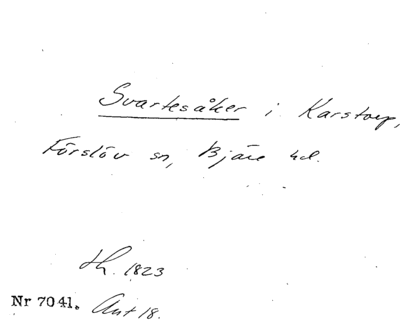 Svartesåker i Karstorp,
Förslöv sn, Bjäre hd.
th. 1823
Nr 7041. Ant 18.